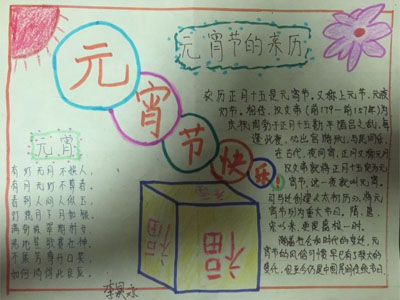 元
宵
节
快
乐
元宵节的来历
农历正月十五是元宵节，又称上元节，元夜，
灯节。相传，汉文帝（前179—前157年）为
庆祝周勃于正月十五勘平诸吕之乱，每
逢此夜，必出宫游玩，与民同乐，
在古代，夜同宵，正月又称元月，
汉文帝就将正月十五定为元
宵节，这一夜就叫元宵。
司马迁创建《太初历》，将元
宵节列为重大节日。隋、唐、
宋以来，更是盛极一时。
随着社会和时代的变迁，元宵
节的风俗习惯早已有了较大的
变化，但至今仍是中国民间传统节日。
元宵
有灯无月不娱人，
有月无灯不算春。
春到人间人似玉，
灯烧月下月如银。
满街珠翠游村女，
沸地笙歌赛社神。
不展芳尊开口笑，
如何消得此良辰。
福
福
福